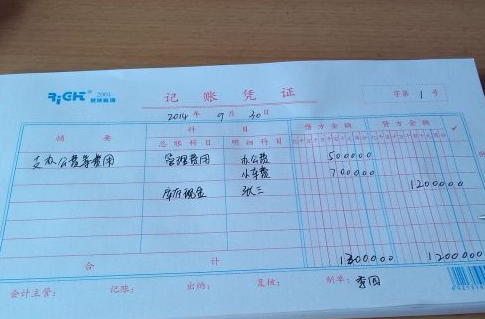 RiGHT 2001
记 账 凭 证
字第 1 号
2014 年 9 月 30 日
摘 要 科 目 借方金额 贷方金额
总账科目 明细科目
支办公费等费用 管理费用 办公费 500000
小车费 700000
库存现金 张三 1200000
合 计 1200000 1200000
会计主管： 记账： 出纳： 复核： 制单：